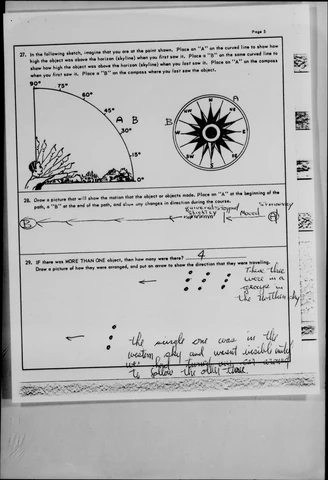 Page 3
27. In the following sketch, imagine that you are at the point shown. Place an "A" on the curved line to show how
high the object was above the horizon (skyline) when you first saw it. Place a "B" on the same curved line to
show how high the object was above the horizon (skyline) when you last saw it. Place an "A" on the compass
when you first saw it. Place a "B" on the compass where you last saw the object.
90°
75°
60°
45°
30°
15°
0°
A B
A
B
N
NE
E
SE
S
SW
W
NW
28. Draw a picture that will show the motion that the object or objects made. Place an "A" at the beginning of the
path, a "B" at the end of the path, and show any changes in direction during the course.
stopped
slightly
Moved
Stationary
B
A
29. IF there was MORE THAN ONE object, then how many were there? 4
Draw a picture of how they were arranged, and put an arrow to show the direction that they were traveling.
These three
were in a
group in
the Northern sky
the single one was in the
western sky and wasn't visible until
we had turned our car around
to follow the other three.